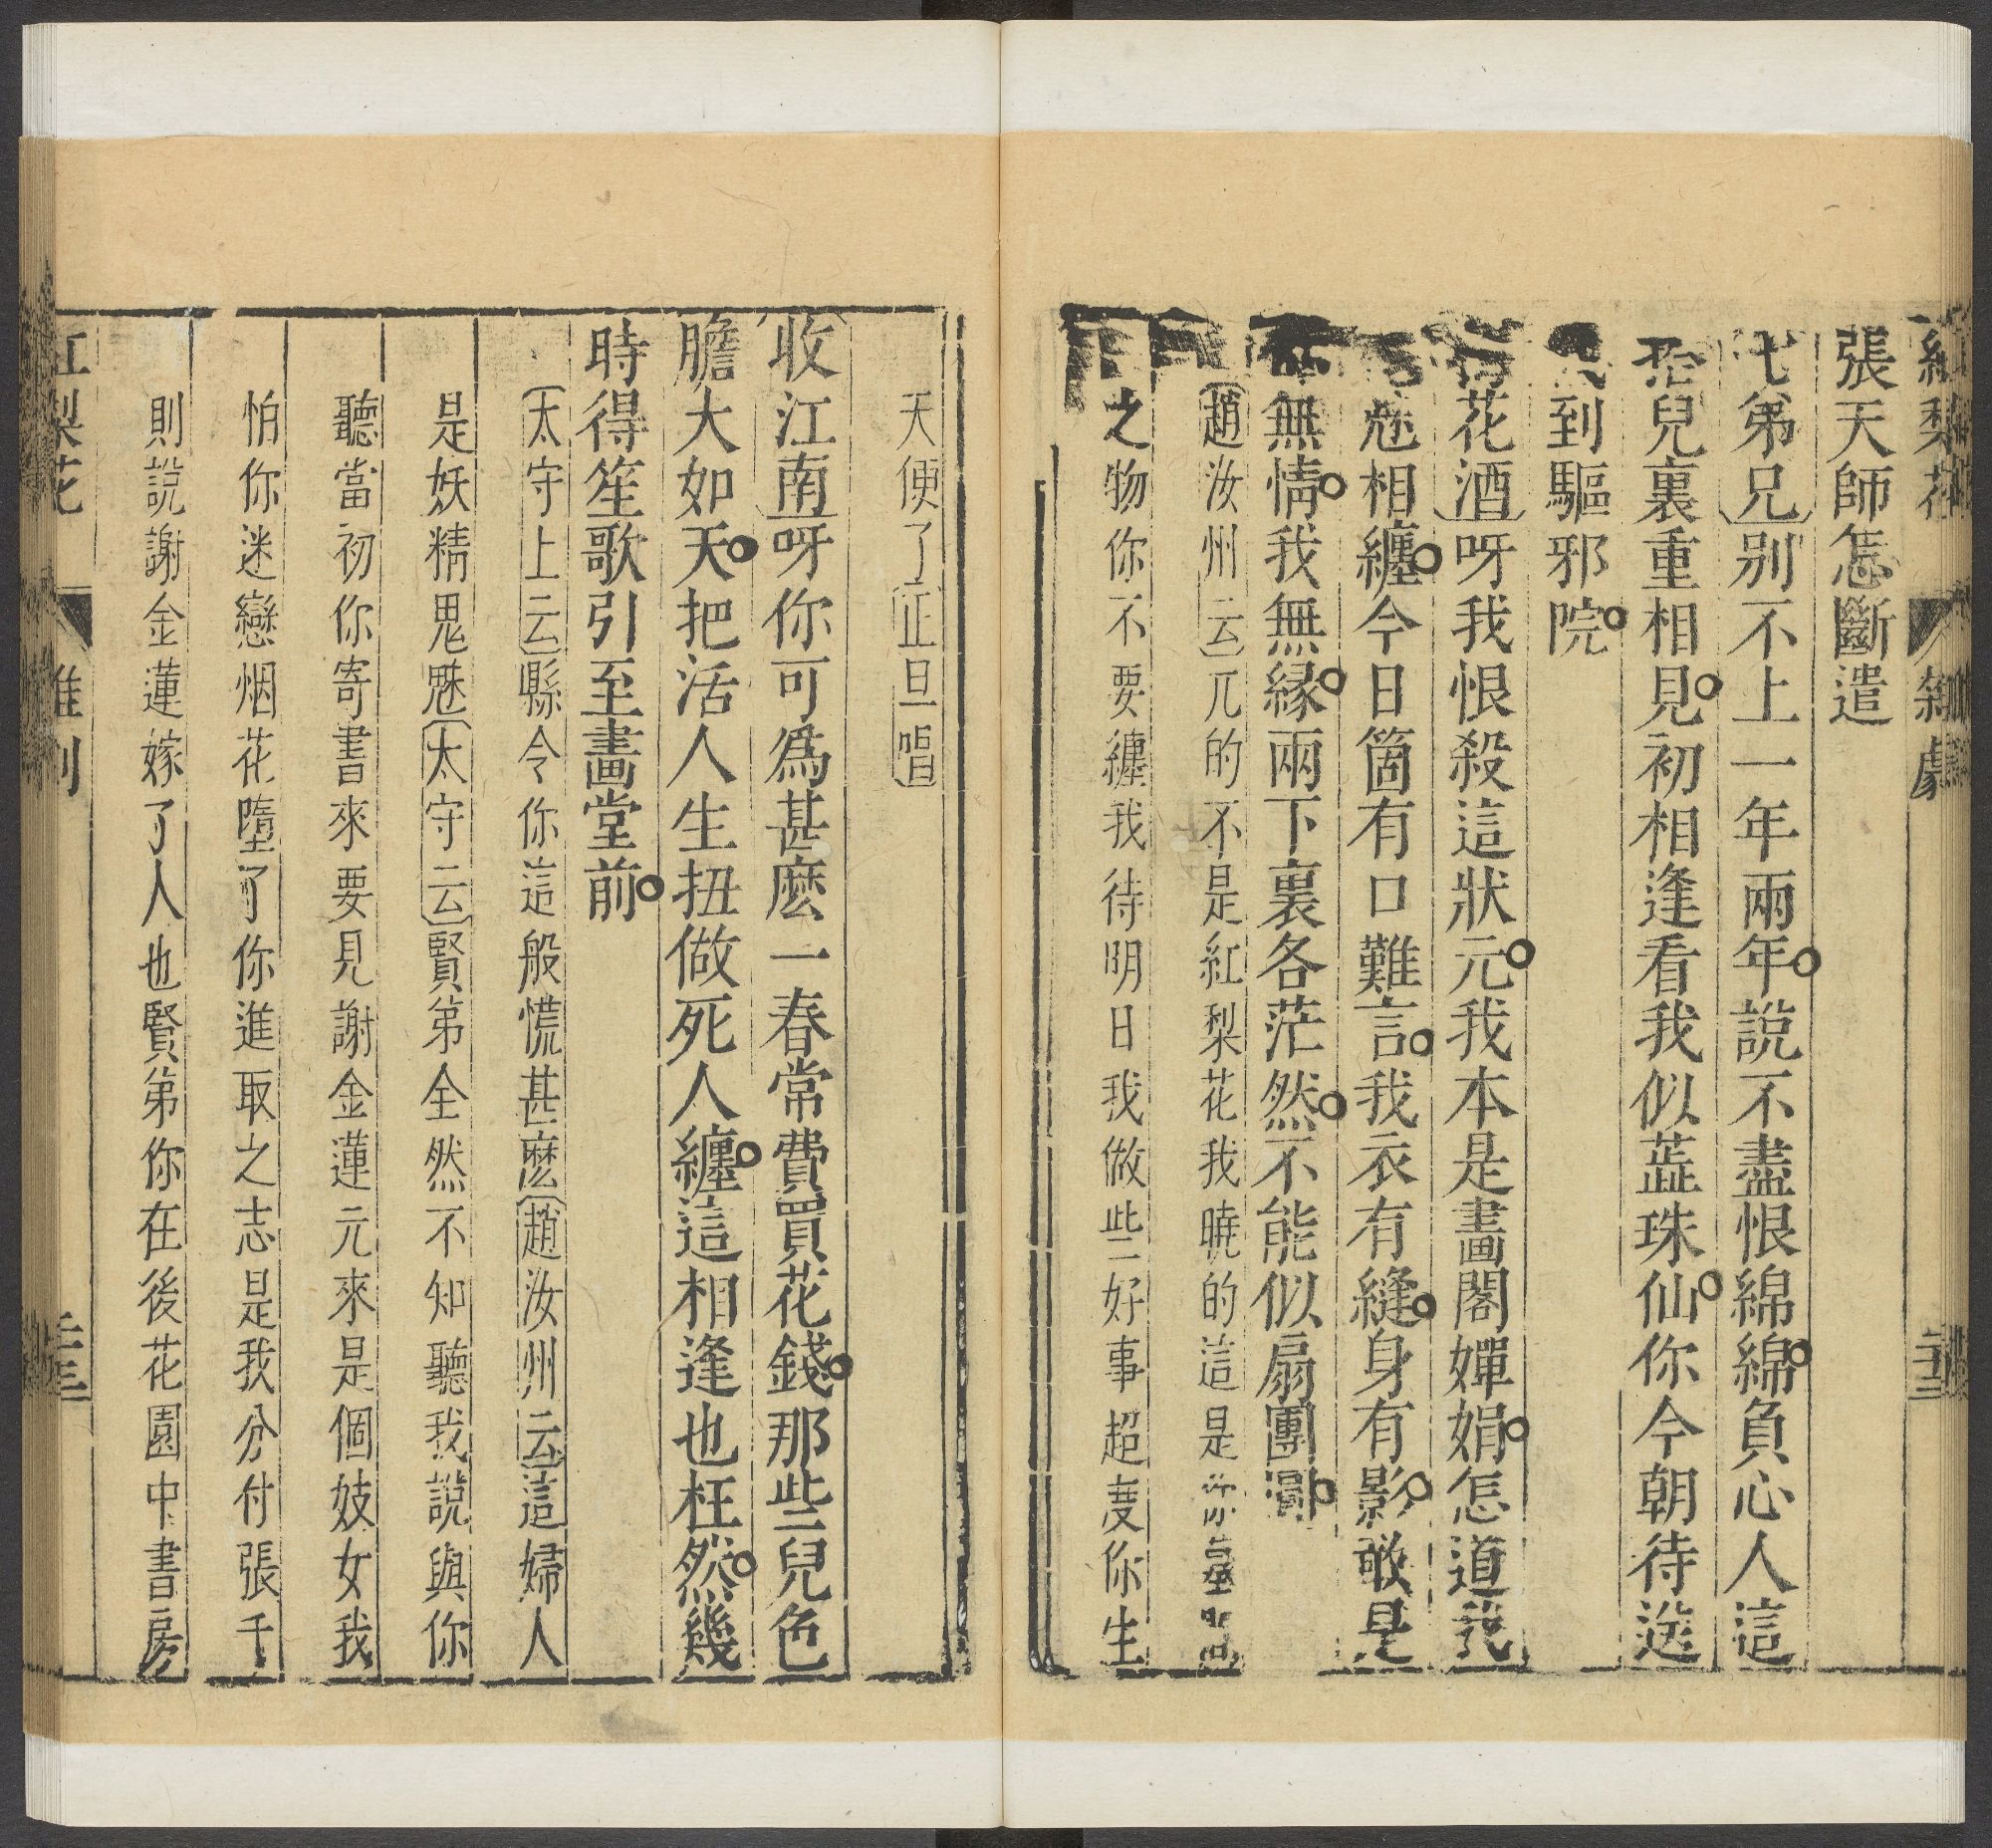 張天師怎斷遣
七弟兄別不上一年兩年說不盡恨綿綿負心人這
兒裏重相見初相逢看我似蕋珠仙你今朝待送
到驅邪院
花酒呀我恨殺這狀元我本是畫閣嬋娟怎道我
魅相纏今日箇有口難言我衣有縫身有影敢是
無情我無緣兩下裏各茫然不能似扇團圓
趙汝州云兀的不是紅梨花我曉的這是你
之物你不要纏我待明日我做些好事超度你生
天便了正旦唱
收江南呀你可爲甚麽一春常費買花錢那些兒色
膽大如天把活人生扭做死人纏這相逢也枉然幾
時得笙歌引至畫堂前
太守上云縣令你這般慌甚麽趙汝州云這婦人
是妖精鬼魅太守云賢弟全然不知聽我說與你
聽當初你寄書來要見謝金蓮元來是個妓女我
怕你迷戀烟花墮了你進取之志是我分付張千
則說謝金蓮嫁了人也賢弟你在後花園中書房